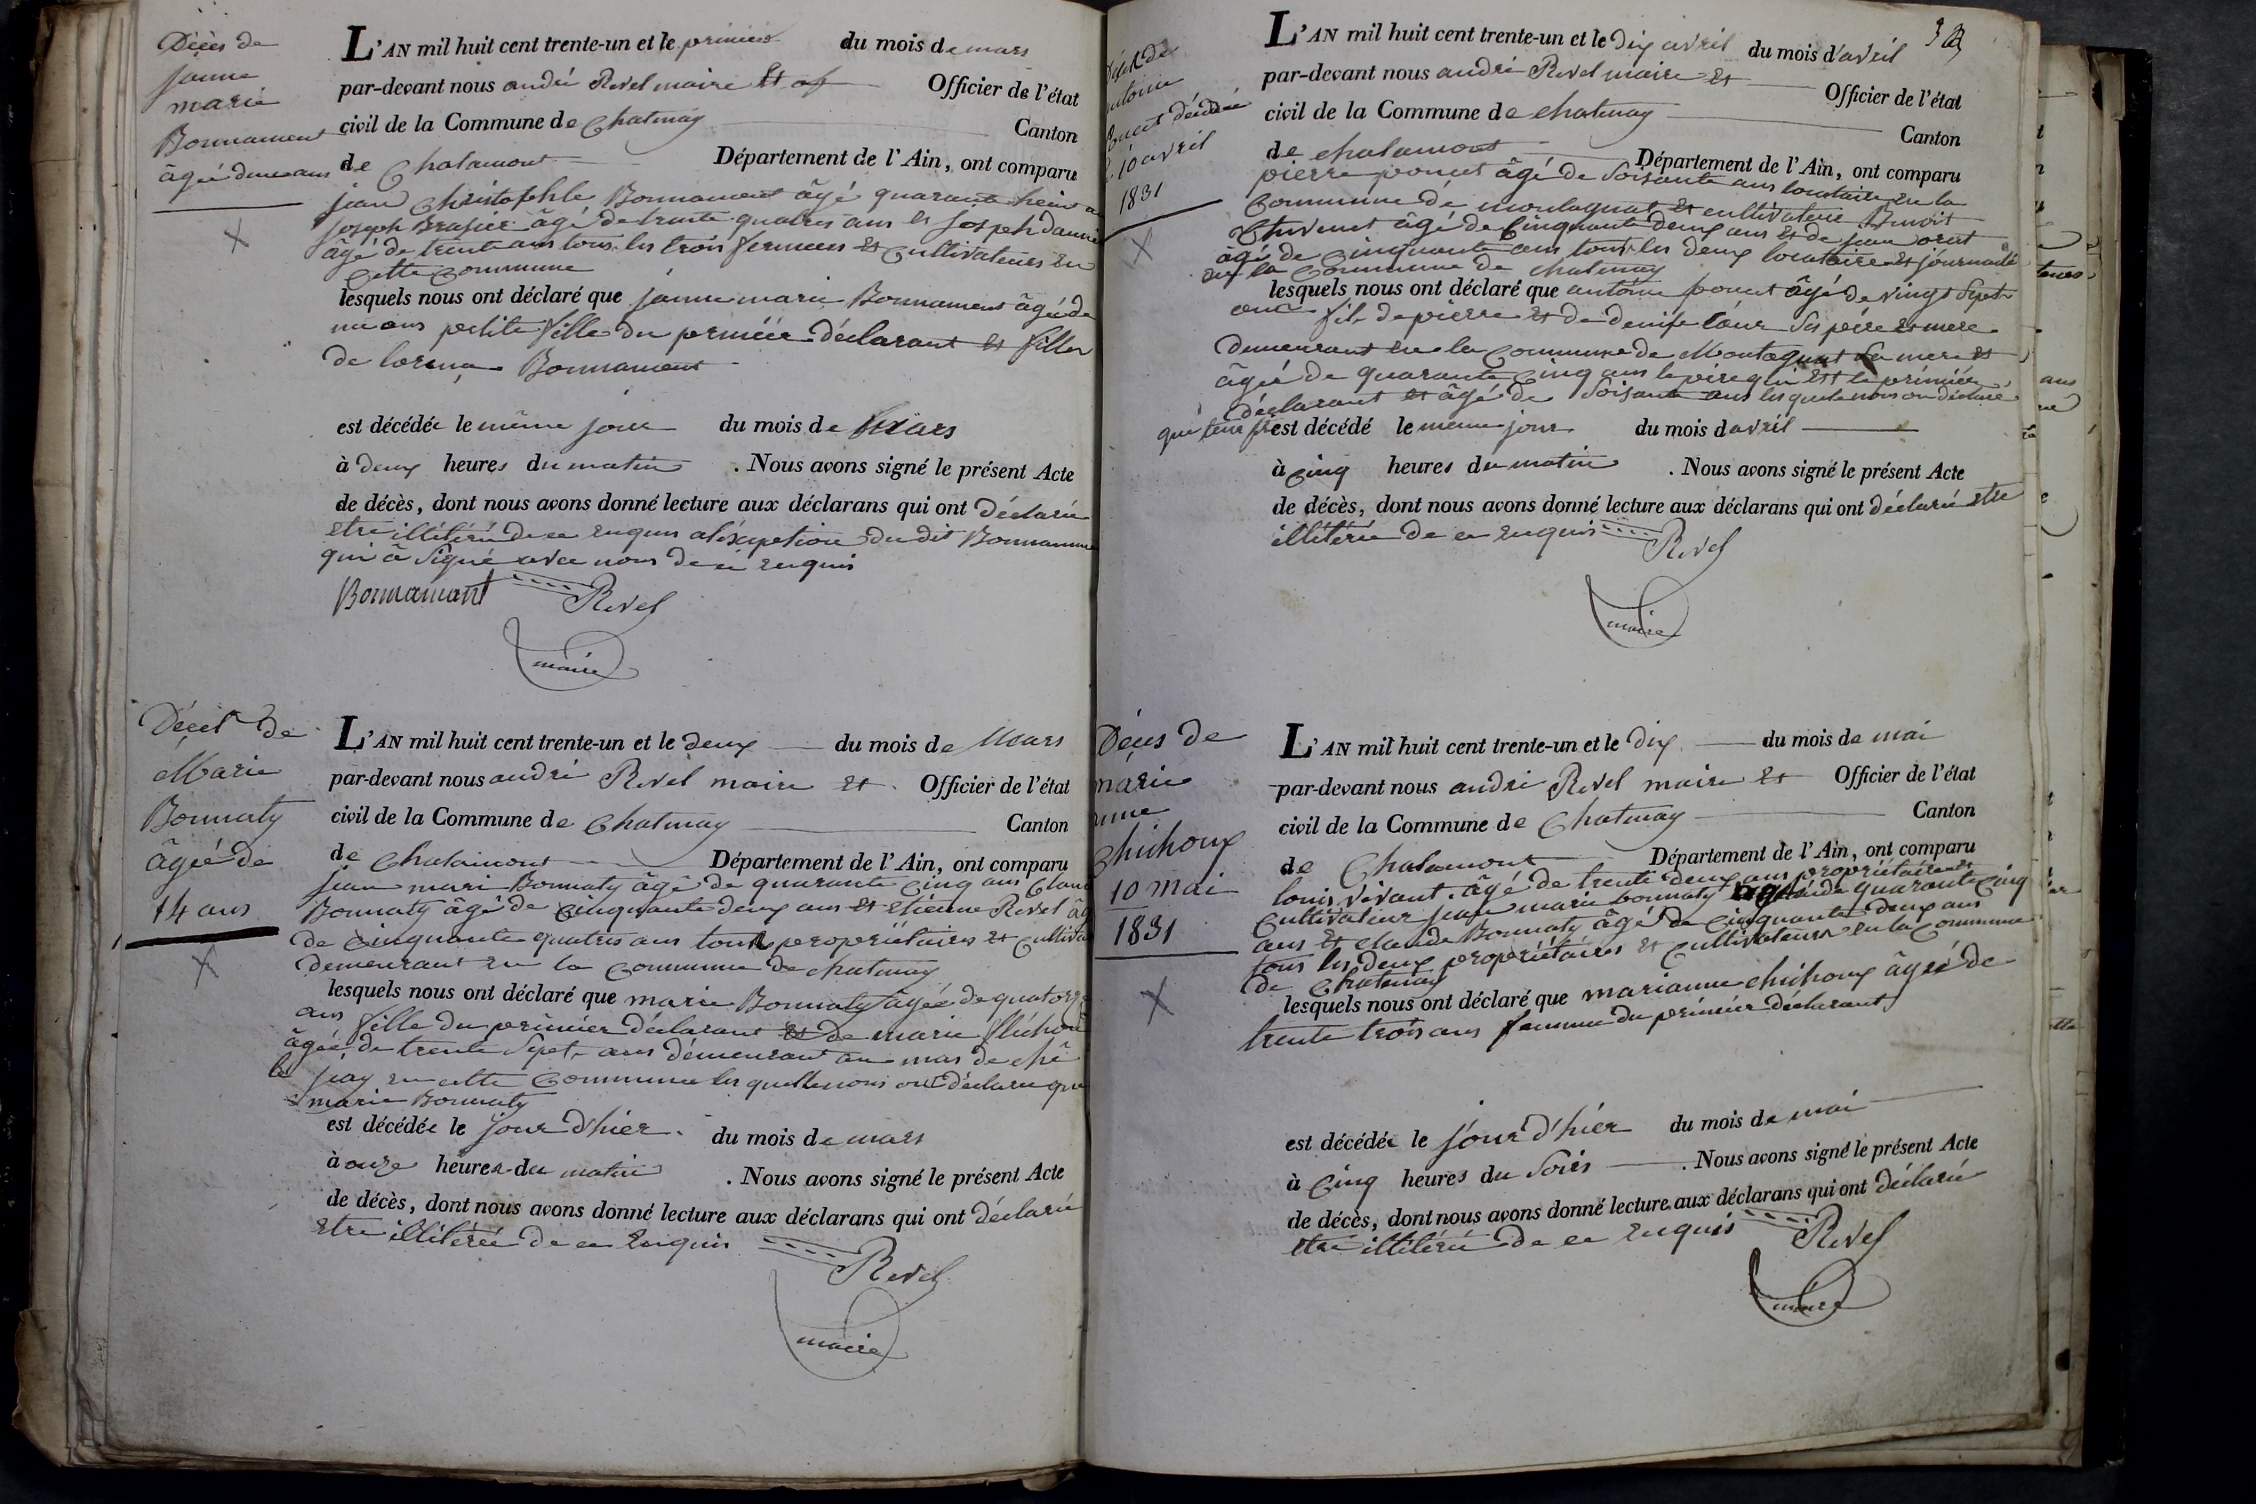 Décès de
janne
marie
Bonnament
âgée deun ans
L'AN mil huit cent trente-un et le premier du mois de mars
par-devant nous andré Revel maire Et of Officier de l'état
civil de la Commune de Chatenay Canton
de Chalamont Département de l'Ain, ont comparu
jean Christophle Bonnament âgé quarante
joseph Brasier âgé de trente quatres ans et joseph
âgé de trente ans tous les trois fermiers Et Cultivateurs En
Cette Commune
lesquels nous ont déclaré que janne marie Bonnament âgé de
un ans petite fille du premiée déclarant Et fille
de Bonnament
est décédée le même jour du mois de Mars
à deux heures du matin . Nous avons signé le présent Acte
de décès, dont nous avons donné lecture aux déclarans qui ont déclaré
Etre illitéré de ce Enquis aléxception du dit Bonnament
qui â Signé avec nous de ce Enquis
Bonnamant Revel
maire
Décet de
Marie
Bonnaty
âgée de
14 ans
L'AN mil huit cent trente-un et le deux du mois de Mars
par-devant nous andré Revel maire Et Officier de l'état
civil de la Commune de Chatenay Canton
de Chalamont Département de l'Ain, ont comparu
jean marie Bonnaty âgé de quarante Cinq ans
Bonnaty âgé de Cinquante deux ans Et Etienne Revel
de Cinquante quatres ans tous propriétaires Et
demeurant En la Commune de chatenay
lesquels nous ont déclaré que marie Bonnaty âgée de quatorze
ans fille du premier déclarant Et de marie
âgée de trente Sept ans démeurant au mas de
En cette Commune les quelle nous ont déclaré que
marie Bonnaty
est décédée le jour d'hier du mois de mars
à onze heures du matin . Nous avons signé le présent Acte
de décès, dont nous avons donné lecture aux déclarans qui ont déclaré
Etre illitéré de ce Enquis Revel
maire
Décet de
poncet décédé
10 avril
1831
L'AN mil huit cent trente-un et le dix avril du mois d'avril
par-devant nous andré Revel maire Et Officier de l'état
civil de la Commune de chatenay Canton
de chalamont Département de l'Ain, ont comparu
pierre poncet âgé de Soisante ans locataire En la
Commune de montagnat Et cultivateur Benoit
Thevenet âgé de Cinquante deux ans Et de jean
âgé de Cinquante ans tous les deux locataire Et journaillé
En la Commune de chatenay
lesquels nous ont déclaré que antoine poncet âgé de vingt Sept
ans fils de pierre Et de denise Ses père Et mere
demeurant En la Commune de Montagnat Sa mere Et
âgée de quarante Cinq ans le père qui Est le premiée
déclarant Et âgé de Soisante ans les quels nous on déclaré
que leur fils est décédé le meme jour du mois d avril
à cinq heures du matin . Nous avons signé le présent Acte
de décès, dont nous avons donné lecture aux déclarans qui ont déclaré etre
illitéré de ce Enquis Revel
maire
Décés de
marie
anne
Chichoux
10 mai
1831
L'AN mil huit cent trente-un et le dix du mois de mai
par-devant nous andré Revel maire Et Officier de l'état
civil de la Commune de Chatenay Canton
de Chalamont Département de l'Ain, ont comparu
louis vivant âgé de trente deux ans propriétaire Et
Cultivateur jean marie bonnaty âgé de quarante Cinq
ans Et claude Bonnaty âgé de Cinquante deux ans
tous les deux propriétaires Et Cultivateurs En la Commune
de Chatenay
lesquels nous ont déclaré que marianne chichoux âgée de
trente trois ans femme du premiér déclarant
est décédée le jour d'hier du mois de mai
à Cinq heures du Soirs . Nous avons signé le présent Acte
de décès, dont nous avons donné lecture aux déclarans qui ont déclaré
etre illitéré de ce Enquis Revel
maire